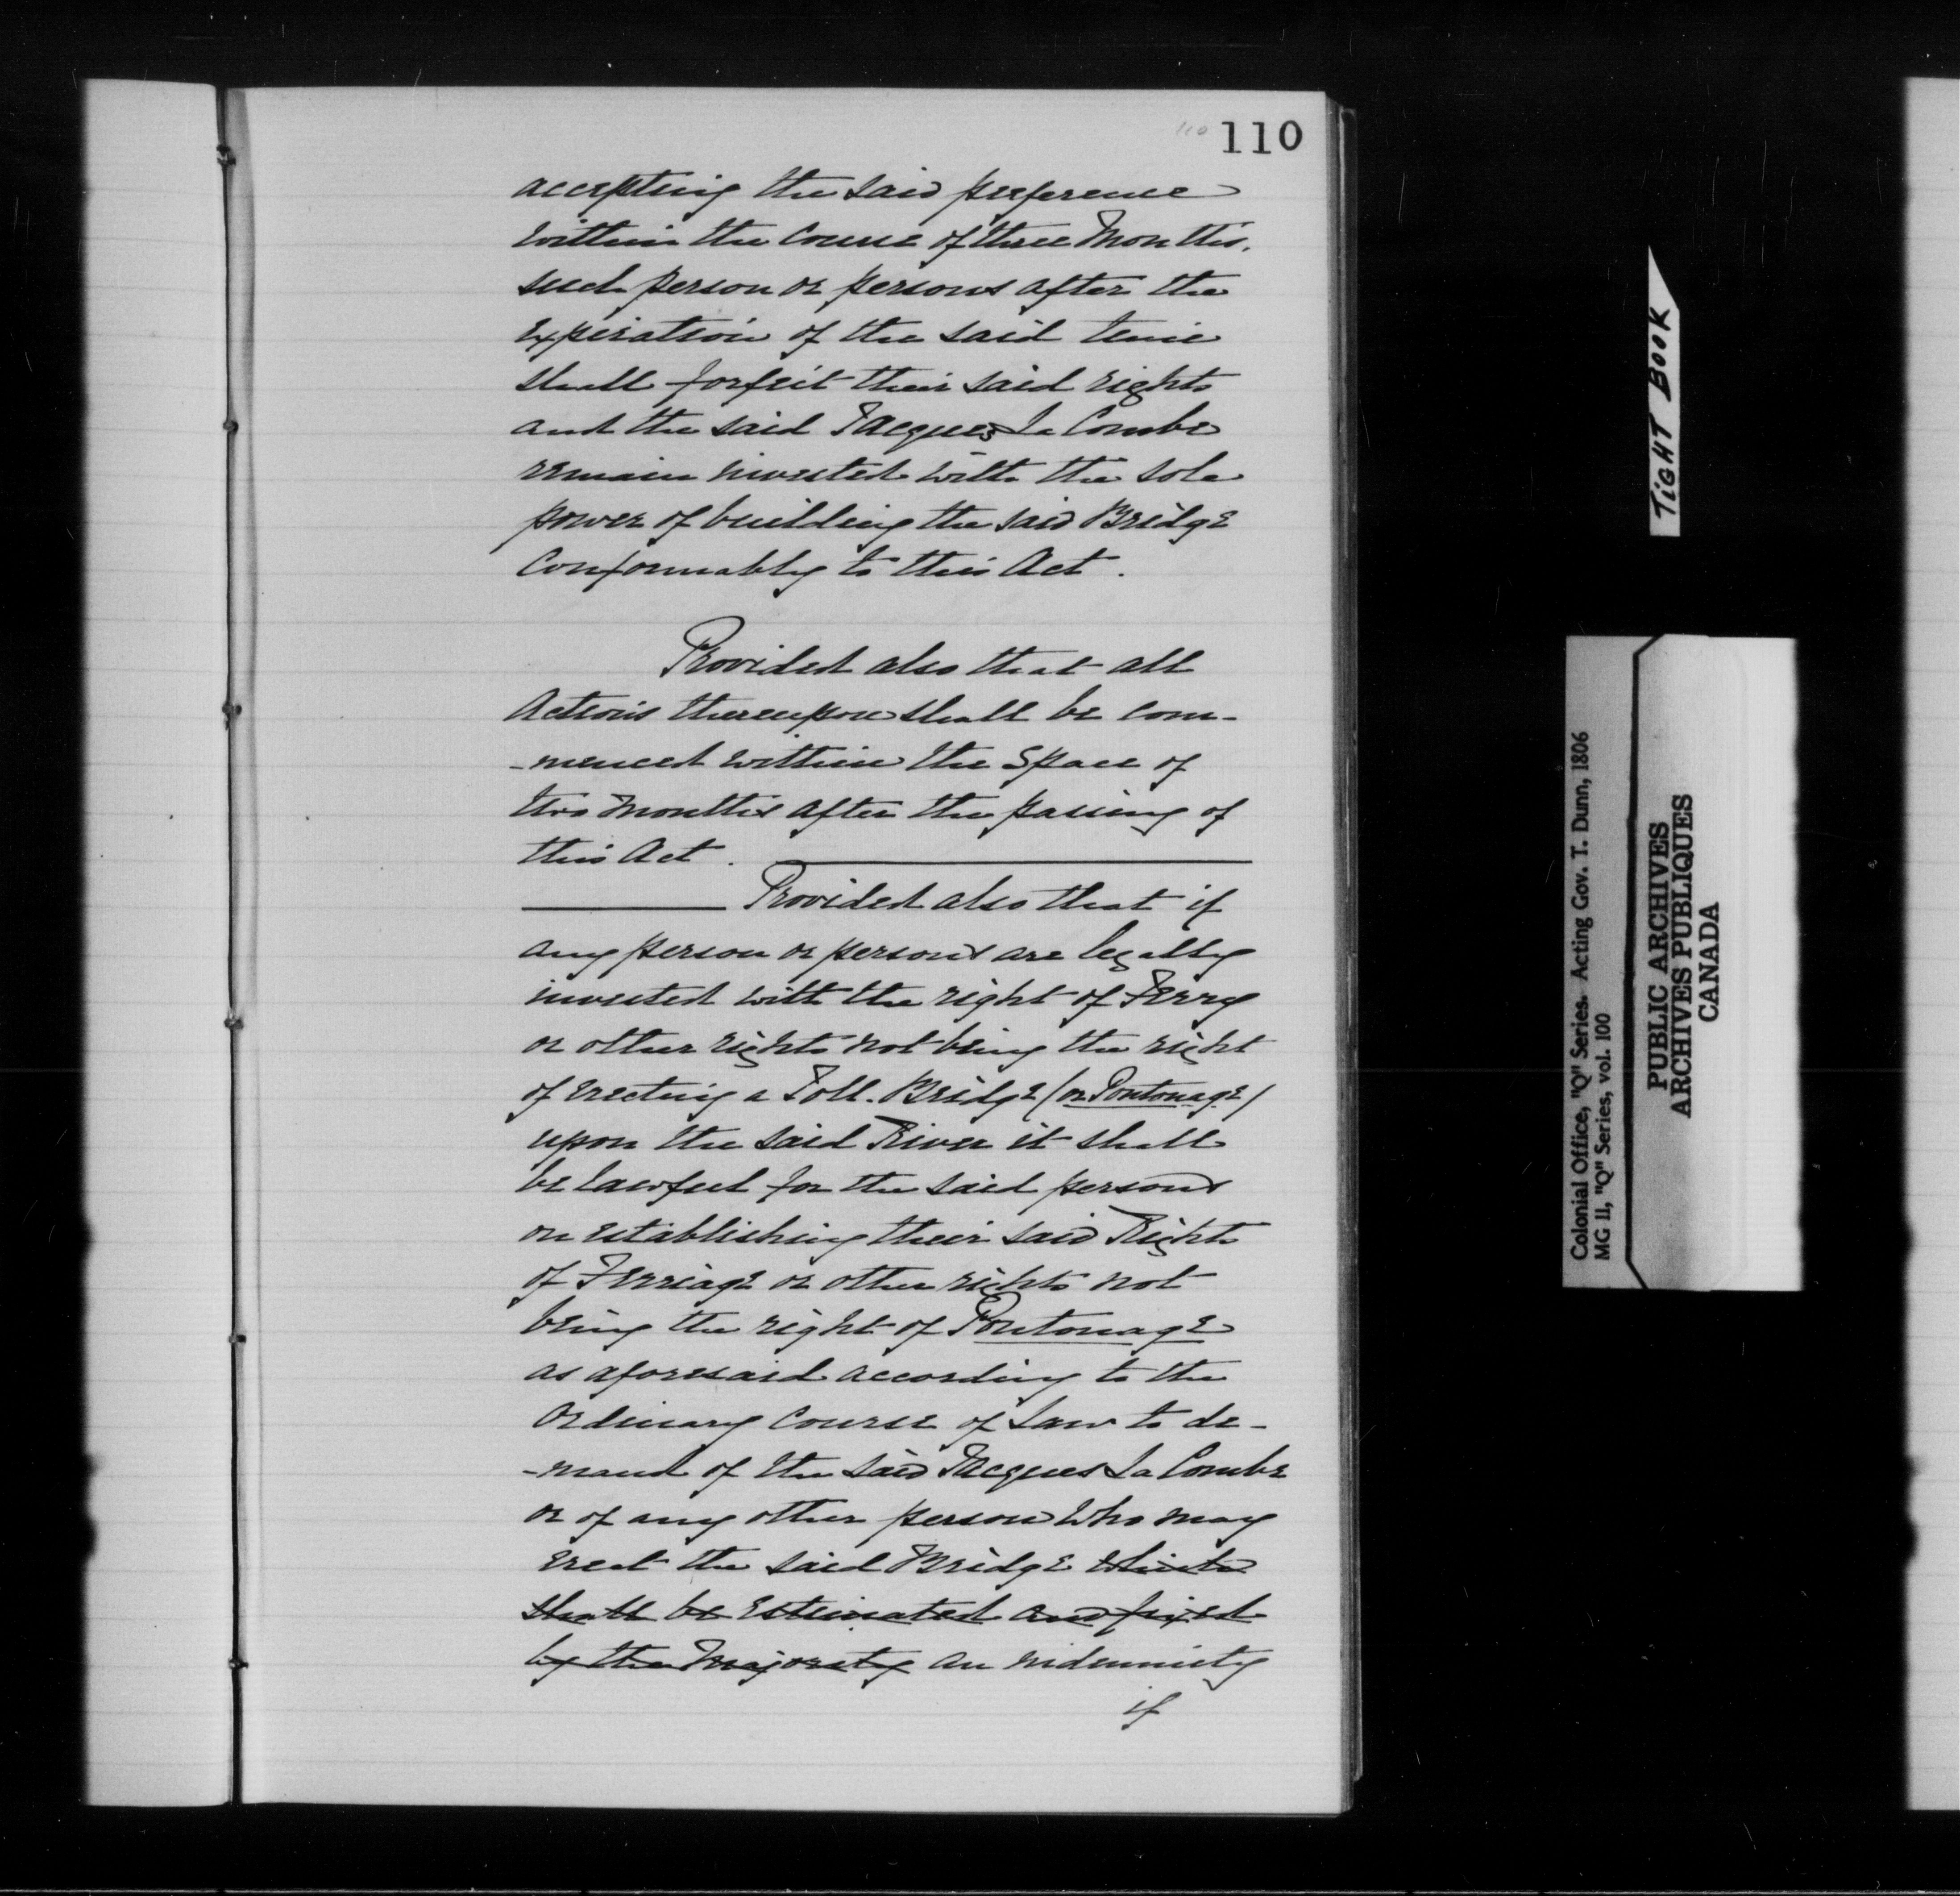 110 110
accepting the said preference
within the course of three Months,
such person or persons after the
expiration of the said time
shall forfeit their said rights
and the said Jacques La Combe
remain invested with the sole
power of building the said Bridge
Conformably to this Act.
Provided also that all
Actions thereupon shall be com-
-menced within the Space of
two Months after the passing of
this Act.
Provided also that if
any person or persons are legally
invested with the right of Ferry
or other rights not being the right
of erecting a Toll-Bridge (or Pontonage)
upon the said River it shall
be lawful for the said persons
on establishing their said Rights
of Ferriage or other rights not
being the right of Pontonage
as aforesaid according to the
Ordinary Course of Law to de-
-mand of the said Jacques La Combe
or of any other person who may
erect the said Bridge which
shall be estimated and fixed
by the Majority an indemnity
if
TIGHT BOOK
Colonial Office, "Q" Series. Acting Gov. T. Dunn, 1806
MG 11, "Q" Series, vol. 100
PUBLIC ARCHIVES
ARCHIVES PUBLIQUES
CANADA